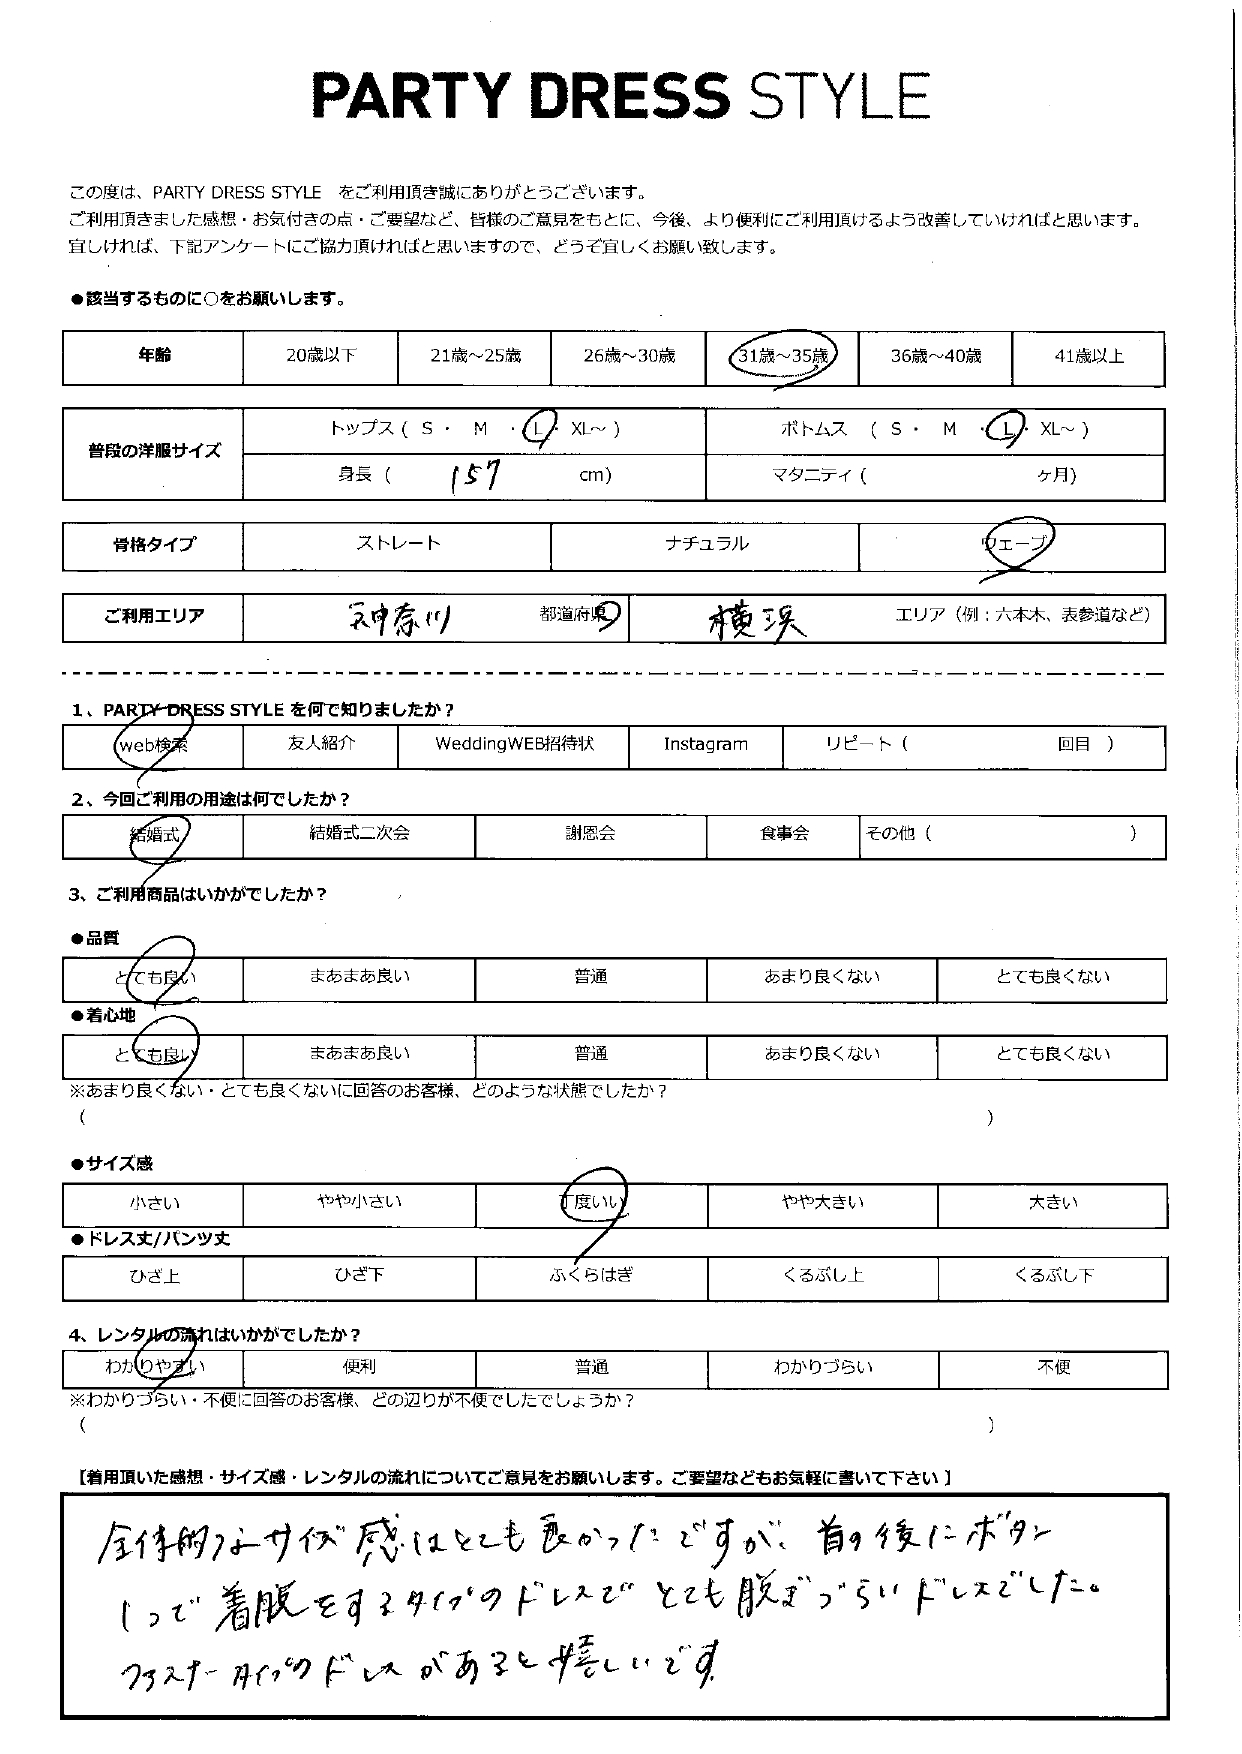 PARTY DRESS STYLE
この度は、PARTY DRESS STYLE をご利用頂き誠にありがとうございます。
ご利用頂きました感想・お気付きの点・ご要望など、皆様のご意見をもとに、今後、より便利にご利用頂けるよう改善していければと思います。
宜しければ、下記アンケートにご協力頂ければと思いますので、どうぞ宜しくお願い致します。
●該当するものに○をお願いします。
年齢 20歳以下 21歳～25歳 26歳～30歳 31歳～35歳 36歳～40歳 41歳以上
普段の洋服サイズ トップス ( S ・ M ・ L ・ XL～ ) ボトムス ( S ・ M ・ L ・ XL～ )
身長 ( 157 cm) マタニティ ( ヶ月)
骨格タイプ ストレート ナチュラル ウェーブ
ご利用エリア 神奈川 都道府県 横浜 エリア（例：六本木、表参道など）
1、PARTY DRESS STYLE を何で知りましたか？
web検索 友人紹介 WeddingWEB招待状 Instagram リピート ( 回目 )
2、今回ご利用の用途は何でしたか？
結婚式 結婚式二次会 謝恩会 食事会 その他 ( )
3、ご利用商品はいかがでしたか？
●品質
とても良い まあまあ良い 普通 あまり良くない とても良くない
●着心地
とても良い まあまあ良い 普通 あまり良くない とても良くない
※あまり良くない・とても良くないに回答のお客様、どのような状態でしたか？
( )
●サイズ感
小さい やや小さい 丁度いい やや大きい 大きい
●ドレス丈/パンツ丈
ひざ上 ひざ下 ふくらはぎ くるぶし上 くるぶし下
4、レンタルの流れはいかがでしたか？
わかりやすい 便利 普通 わかりづらい 不便
※わかりづらい・不便に回答のお客様、どの辺りが不便でしたでしょうか？
( )
【着用頂いた感想・サイズ感・レンタルの流れについてご意見をお願いします。ご要望などもお気軽に書いて下さい 】
全体的なサイズ感はとても良かったですが、首の後にボタン
1つで着脱をするタイプのドレスでとても脱ぎづらいドレスでした。
ファスナータイプのドレスがあると嬉しいです